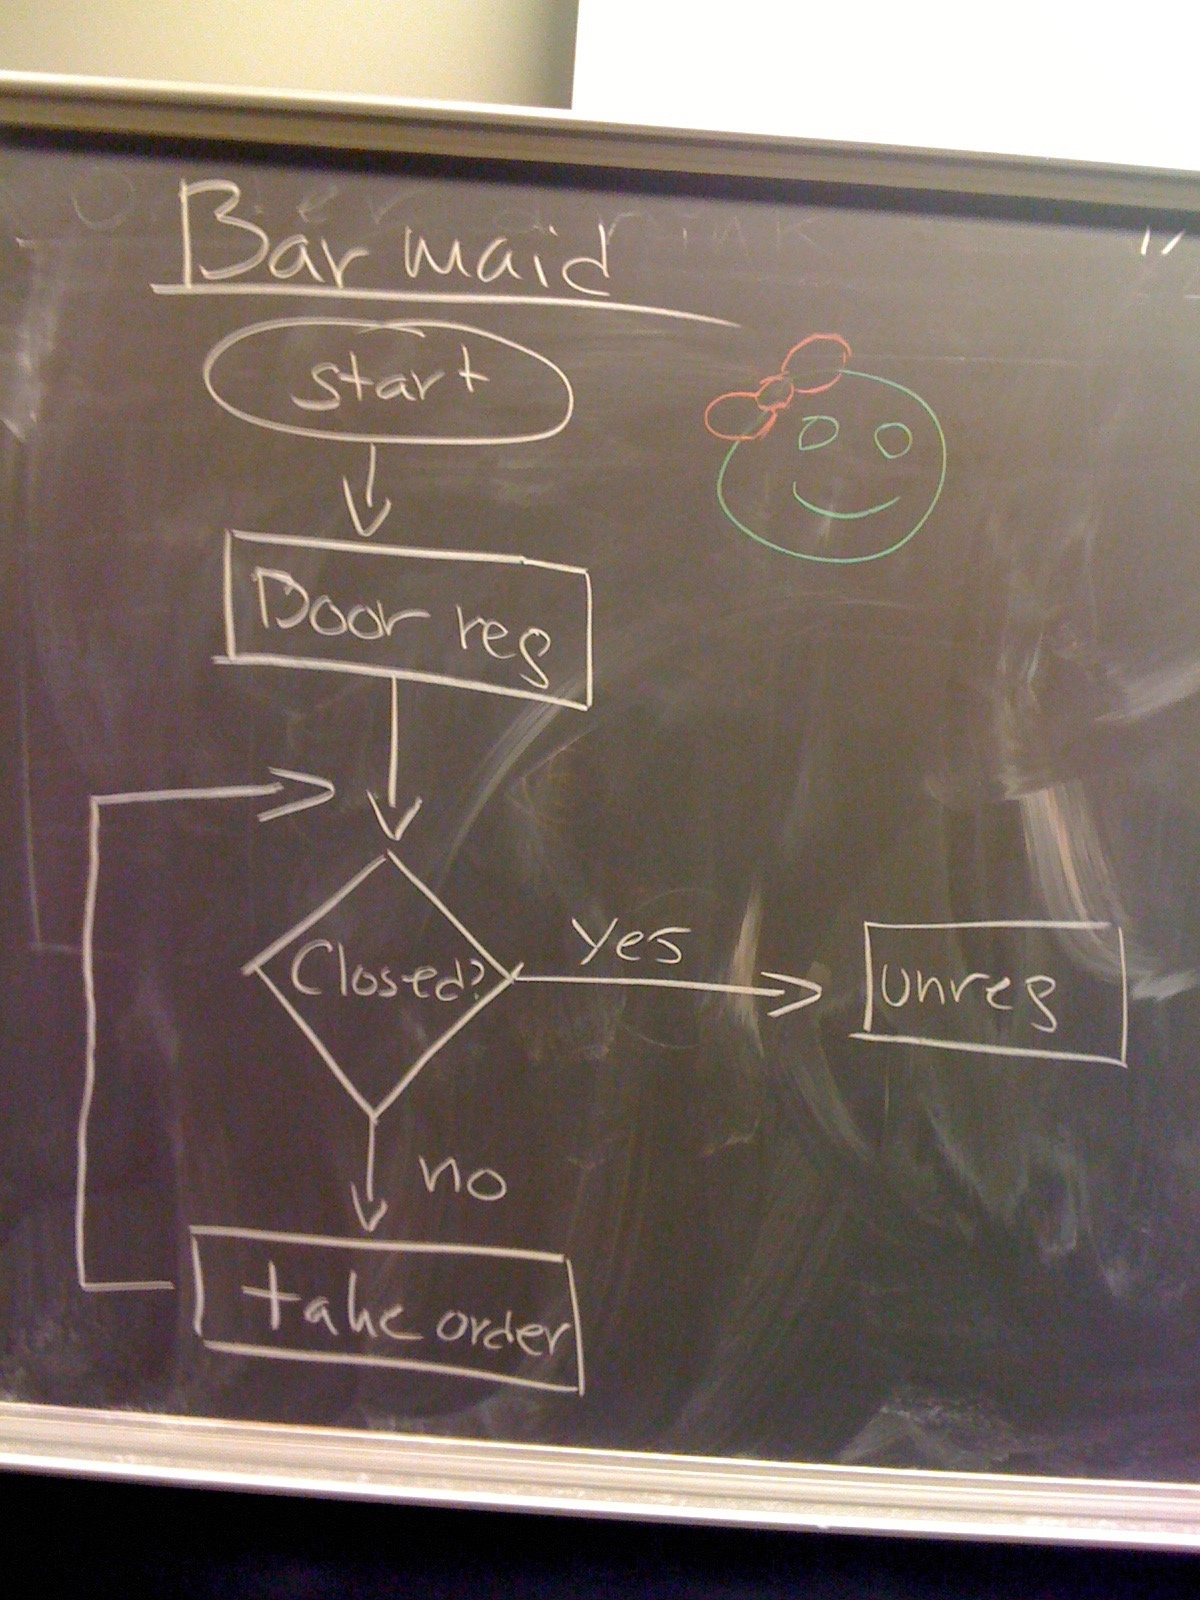 Bar maid
start
Door reg
Closed?
yes
unreg
no
take order